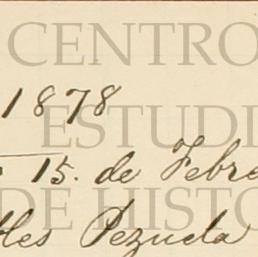 CENTRO
1878
ESTUDI
15. de Febre
DE HISTO
Pezuela